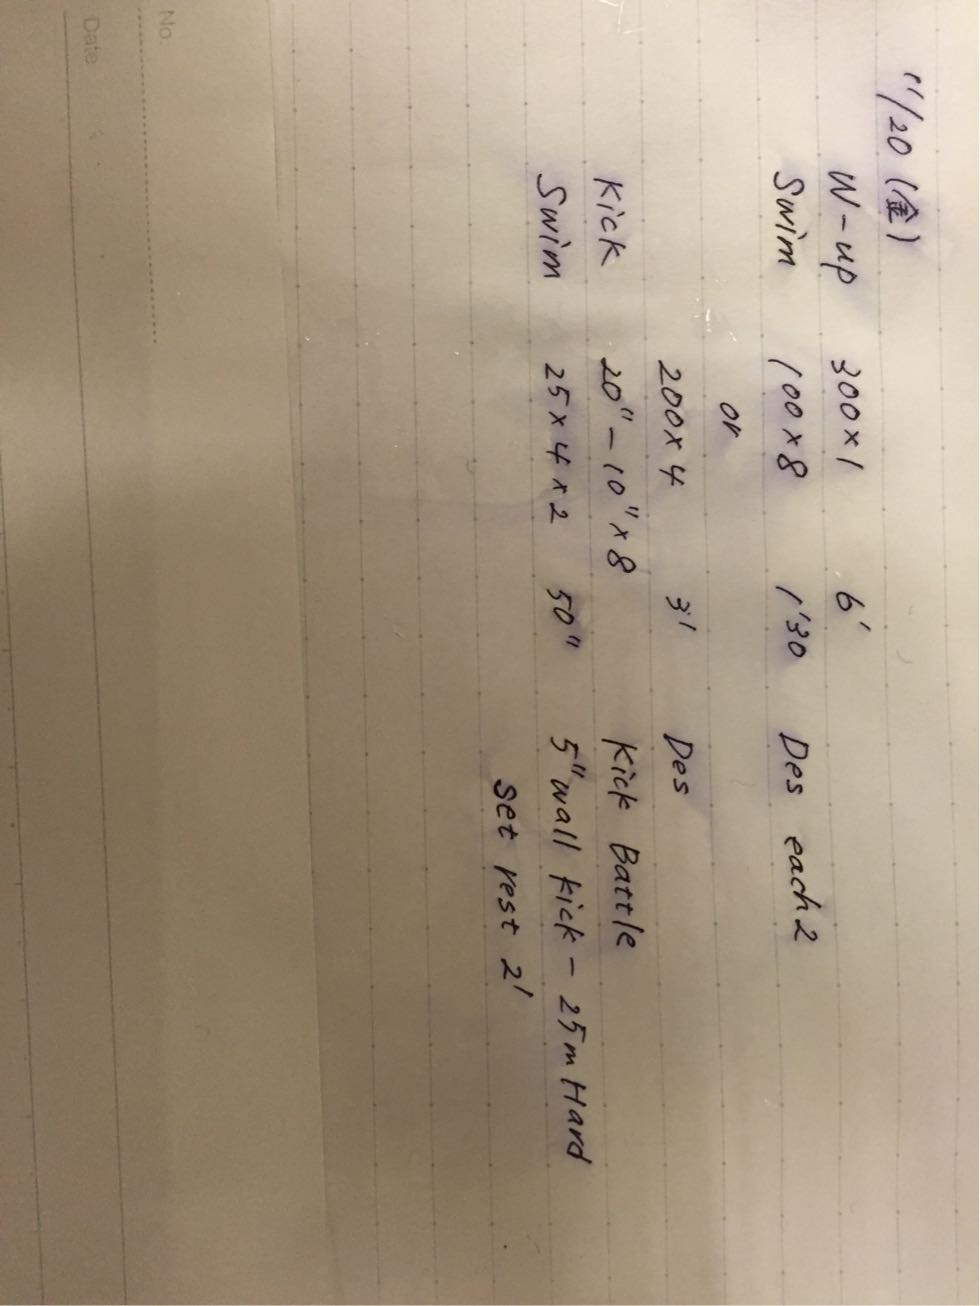 No.
Date
11/20 (金)
W-up 300×1 6'
Swim 100×8 1'30 Des each 2
or
200×4 3' Des
Kick 20"-10"×8 Kick Battle
Swim 25×4×2 50" 5"wall kick - 25m Hard
set rest 2'